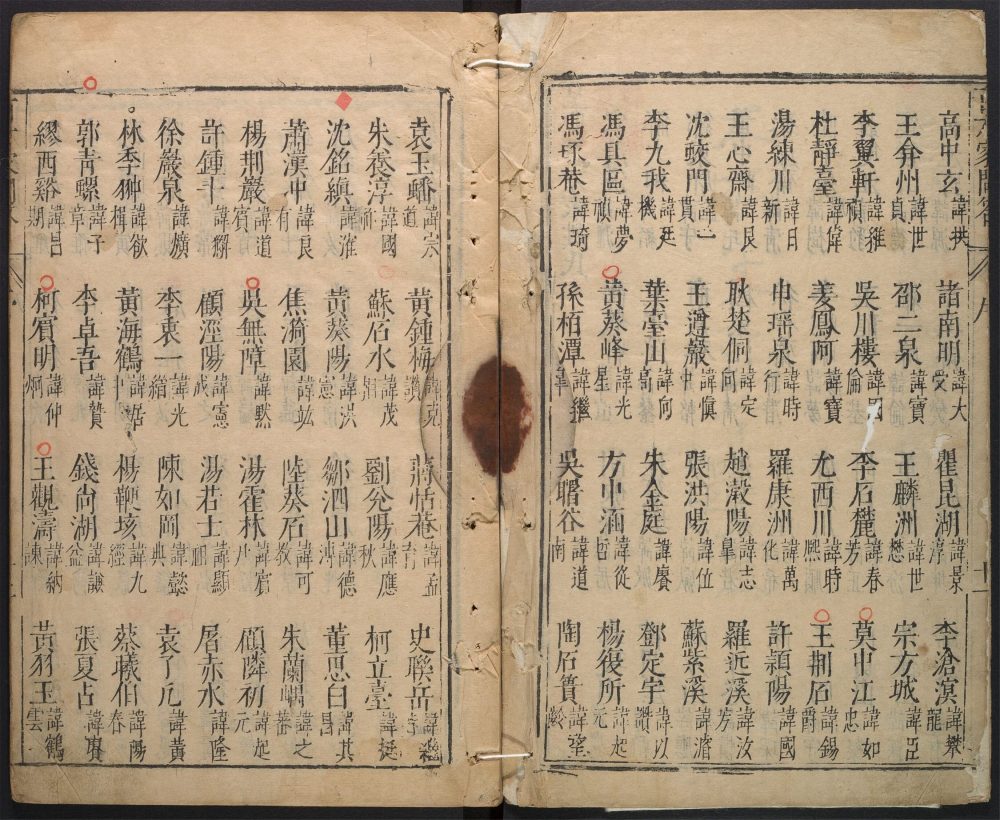 高中玄諱拱 諸南明諱大受 瞿昆湖諱景淳 李滄溟諱攀龍
王弇州諱世貞 邵二泉諱寶 王麟洲諱世懋 宗方城諱臣
李翼軒諱維禎 吳川樓諱國倫 李石麓諱春芳 莫中江諱如忠
杜靜臺諱偉 姜鳳阿諱寶 尤西川諱時熙 王荆石諱錫爵
湯練川諱日新 申瑶泉諱時行 羅康洲諱萬化 許潁陽諱國
王心齋諱艮 耿楚侗諱定向 趙瀔陽諱志臯 羅近溪諱汝芳
沈蛟門諱一貫 王遵巖諱慎中 張洪陽諱位 蘇紫溪諱濬
李九我諱廷機 葉臺山諱向高 朱金庭諱賡 鄧定宇諱以讚
馮具區諱夢禎 黃葵峰諱光星 方中涵諱從哲 楊復所諱起元
馮琢菴諱琦 孫栢潭諱繼臯 吳曙谷諱道南 陶石簣諱望齡
袁玉蟠諱宗道 黃鍾梅諱克纘 蔣恬菴諱孟育 史聯岳諱繼偕
朱養淳諱國祚 蘇石水諱茂相 劉兊陽諱應秋 柯立臺諱挺
沈銘縝諱㴶 黃葵陽諱洪憲 鄒泗山諱德溥 董思白諱其昌
蕭漢冲諱良有 焦漪園諱竑 陸葵石諱可教 朱蘭嵎諱之蕃
楊荆巖諱道賓 吳無障諱默 湯霍林諱賓尹 顧隣初諱起元
許鍾斗諱獬 顧涇陽諱憲成 湯若士諱顯祖 屠赤水諱隆
徐巖泉諱爌 李衷一諱光縉 陳如岡諱懿典 袁了凡諱黃
林季翀諱欲楫 黃海鶴諱居中 楊鞭垓諱九經 蔡曦伯諱陽春
郭青螺諱子章 李卓吾諱贄 錢尚湖諱謙益 張夏占諱賚
繆西谿諱昌期 柯賓明諱仲炯 王觀濤諱納諫 黃羽王諱鶴雲